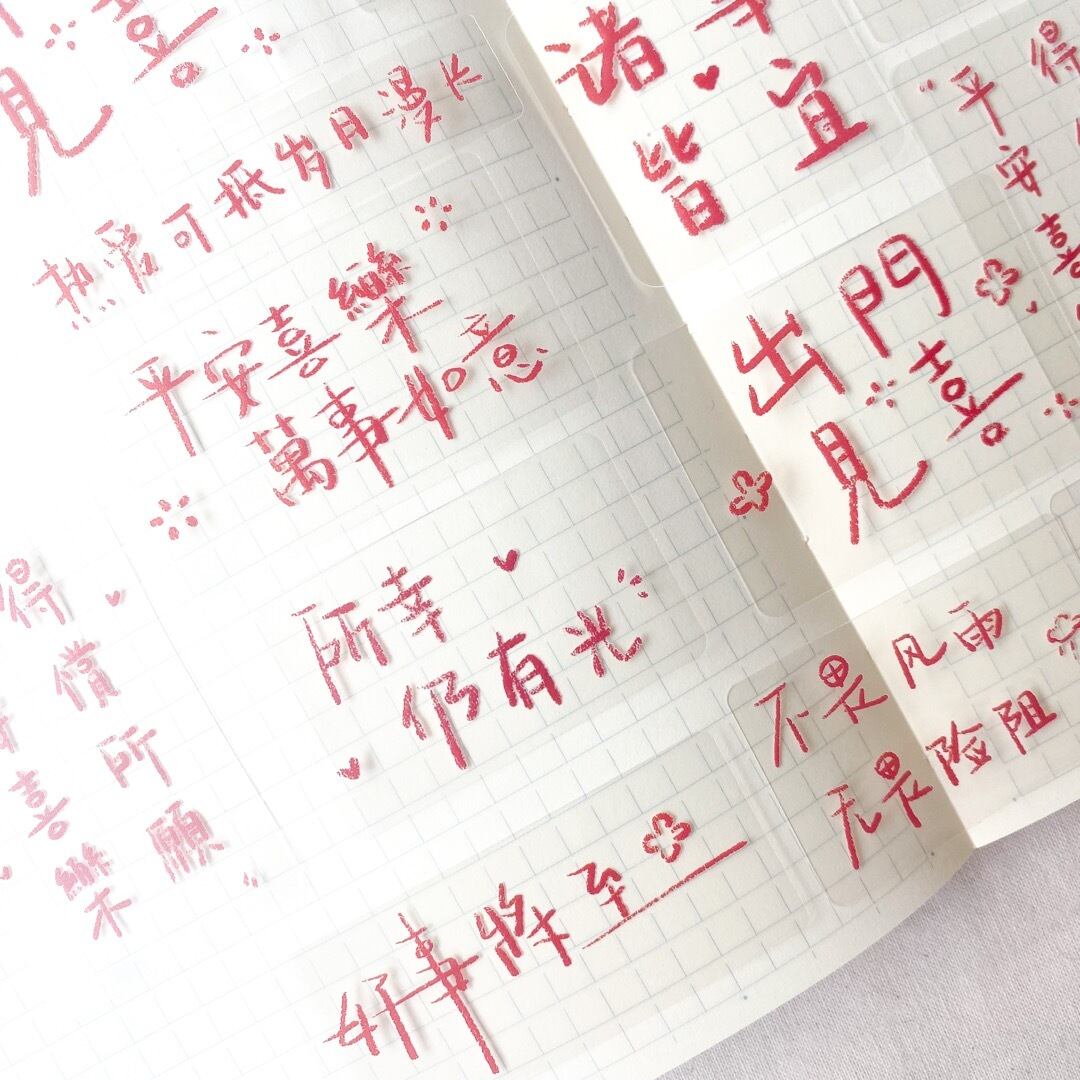 喜
見
热爱可抵岁月漫长
平安喜樂
萬事如意
所幸
仍有光
得償所願
喜樂
好事將至
诸
皆宜
得
"平安喜
出門
見喜
不畏风雨
无畏险阻